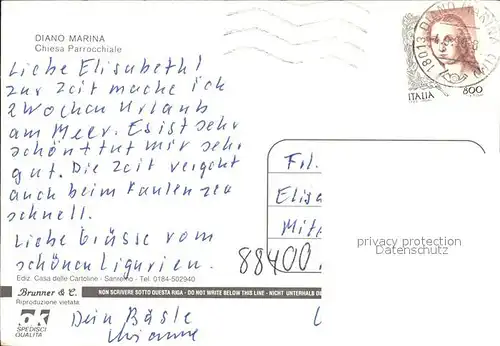 DIANO MARINA
Chiesa Parrocchiale
Liebe Elisabeth!
Zur Zeit mache ich
2 Wochen Urlaub
am Meer. Es ist sehr
schön & tut mir sehr
gut. Die Zeit vergeht
auch beim Faulenzen
schnell.
Liebe Grüsse vom
schönen Ligurien.
18013 DIANO MARINA
ITALIA
800
Frl.
Elisa
Mitt
88400
privacy protection
Datenschutz
Ediz. Casa delle Cartoline - Sanremo - Tel. 0184-502940
Brunner & C.
NON SCRIVERE SOTTO QUESTA RIGA - DO NOT WRITE BELOW THIS LINE - NICHT UNTERHALB D
Riproduzione vietata
OK
SPEDISCI
QUALITÀ
Dein Bäsle